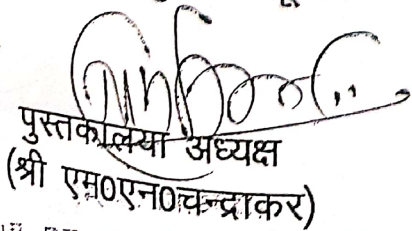 पुस्तकालया अध्यक्ष
(श्री एम0एन0चन्द्राकर)